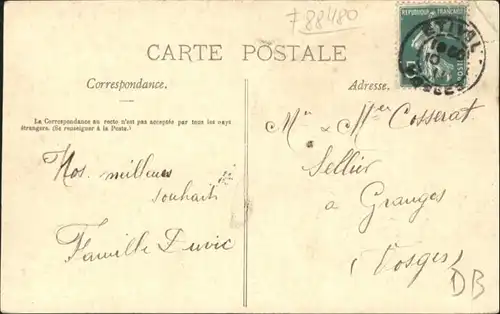 F 88480
CARTE POSTALE
Correspondance.
La Correspondance au recto n'est pas acceptée par tous les pays
étrangers. (Se renseigner à la Poste.)
Nos meilleurs
souhaits
Famille Duvic
Adresse.
ETIVAL
VOSGES
Mr & Mme Cosserat
Sellier
à Granges
(Vosges)
DB